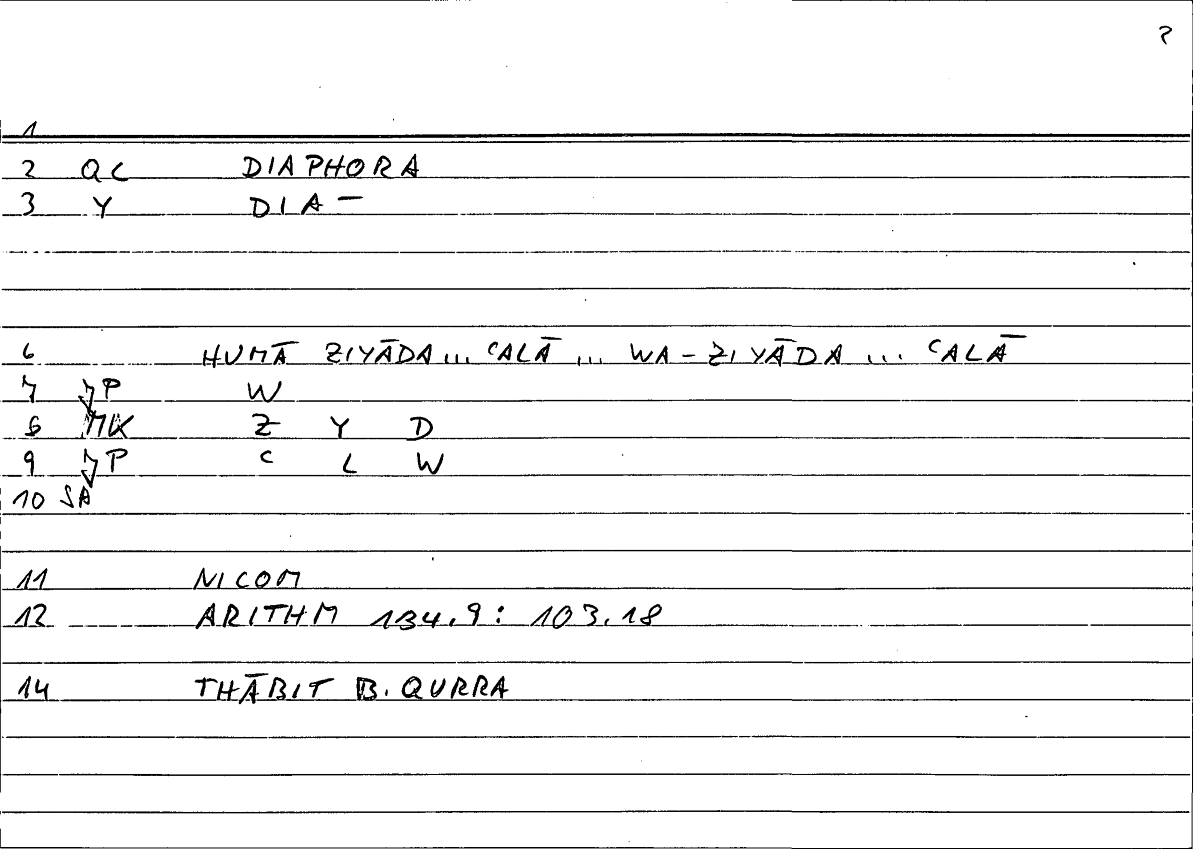 2
1
2 QC DIAPHORA
3 Y DIA-
6 HUMĀ ZIYĀDA... ʿALĀ ... WA-ZIYĀDA ... ʿALĀ
7 JP W
8 MK Z Y D
9 JP ʿ L W
10 SA
11 NICOM
12 ARITHM 134.9: 103.18
14 THĀBIT B. QURRA